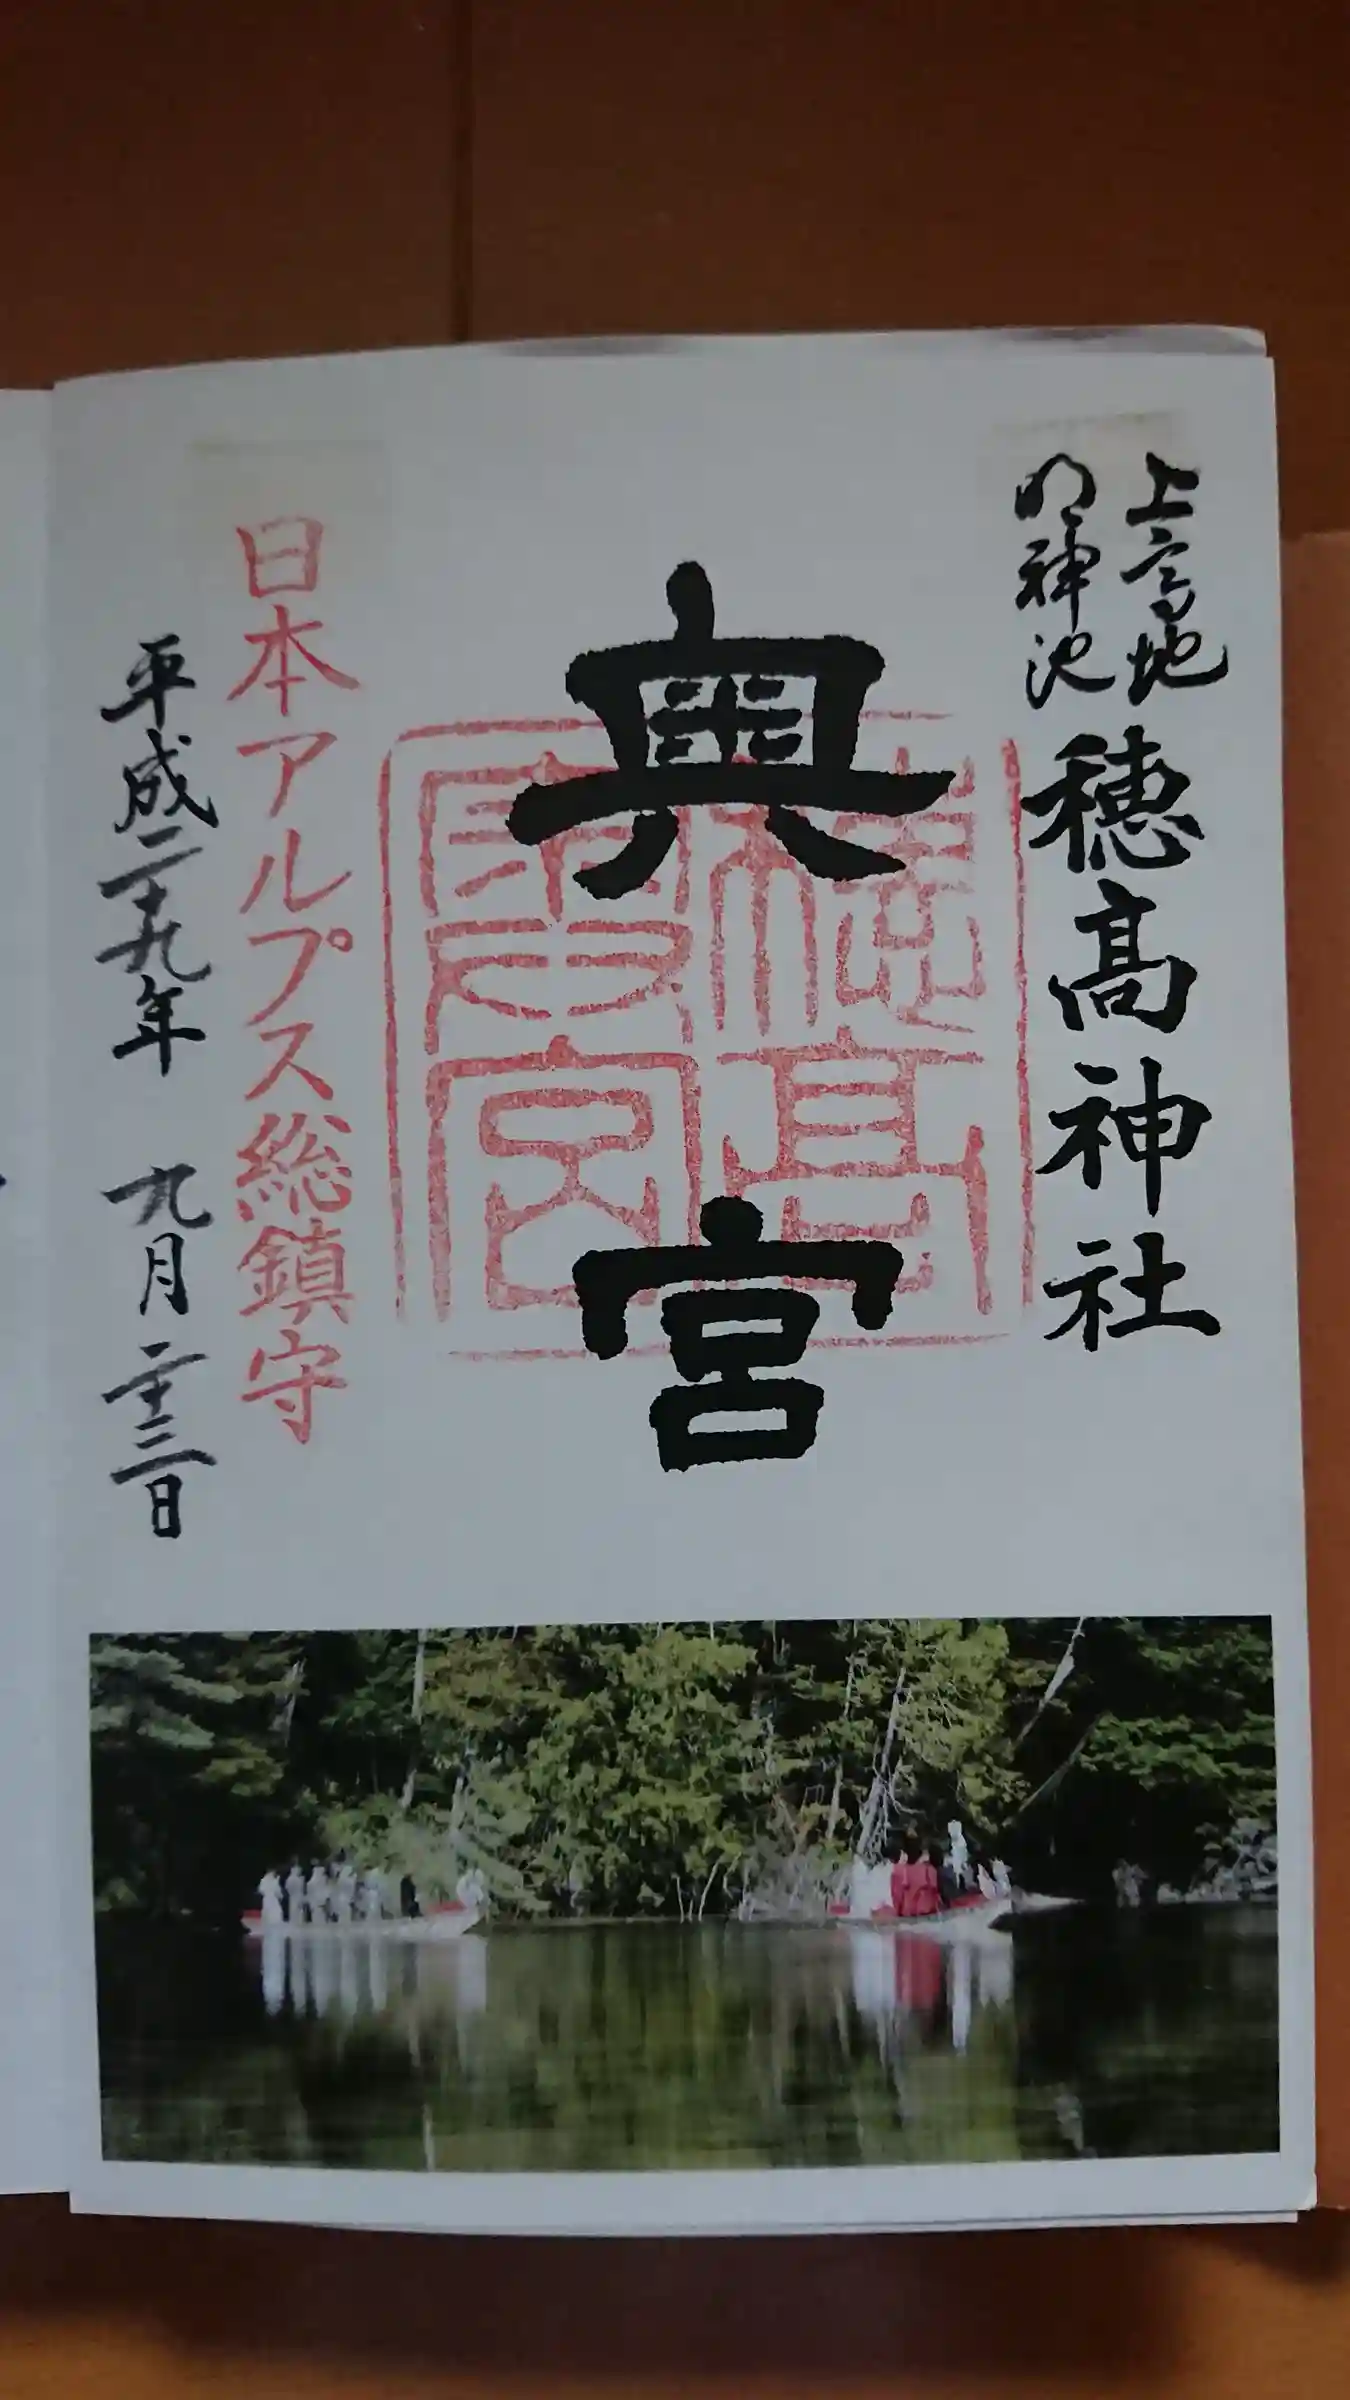 上高地
明神池
穂髙神社
奥宮
穂高
奥宮
日本アルプス総鎮守
平成二十九年 九月 二十三日